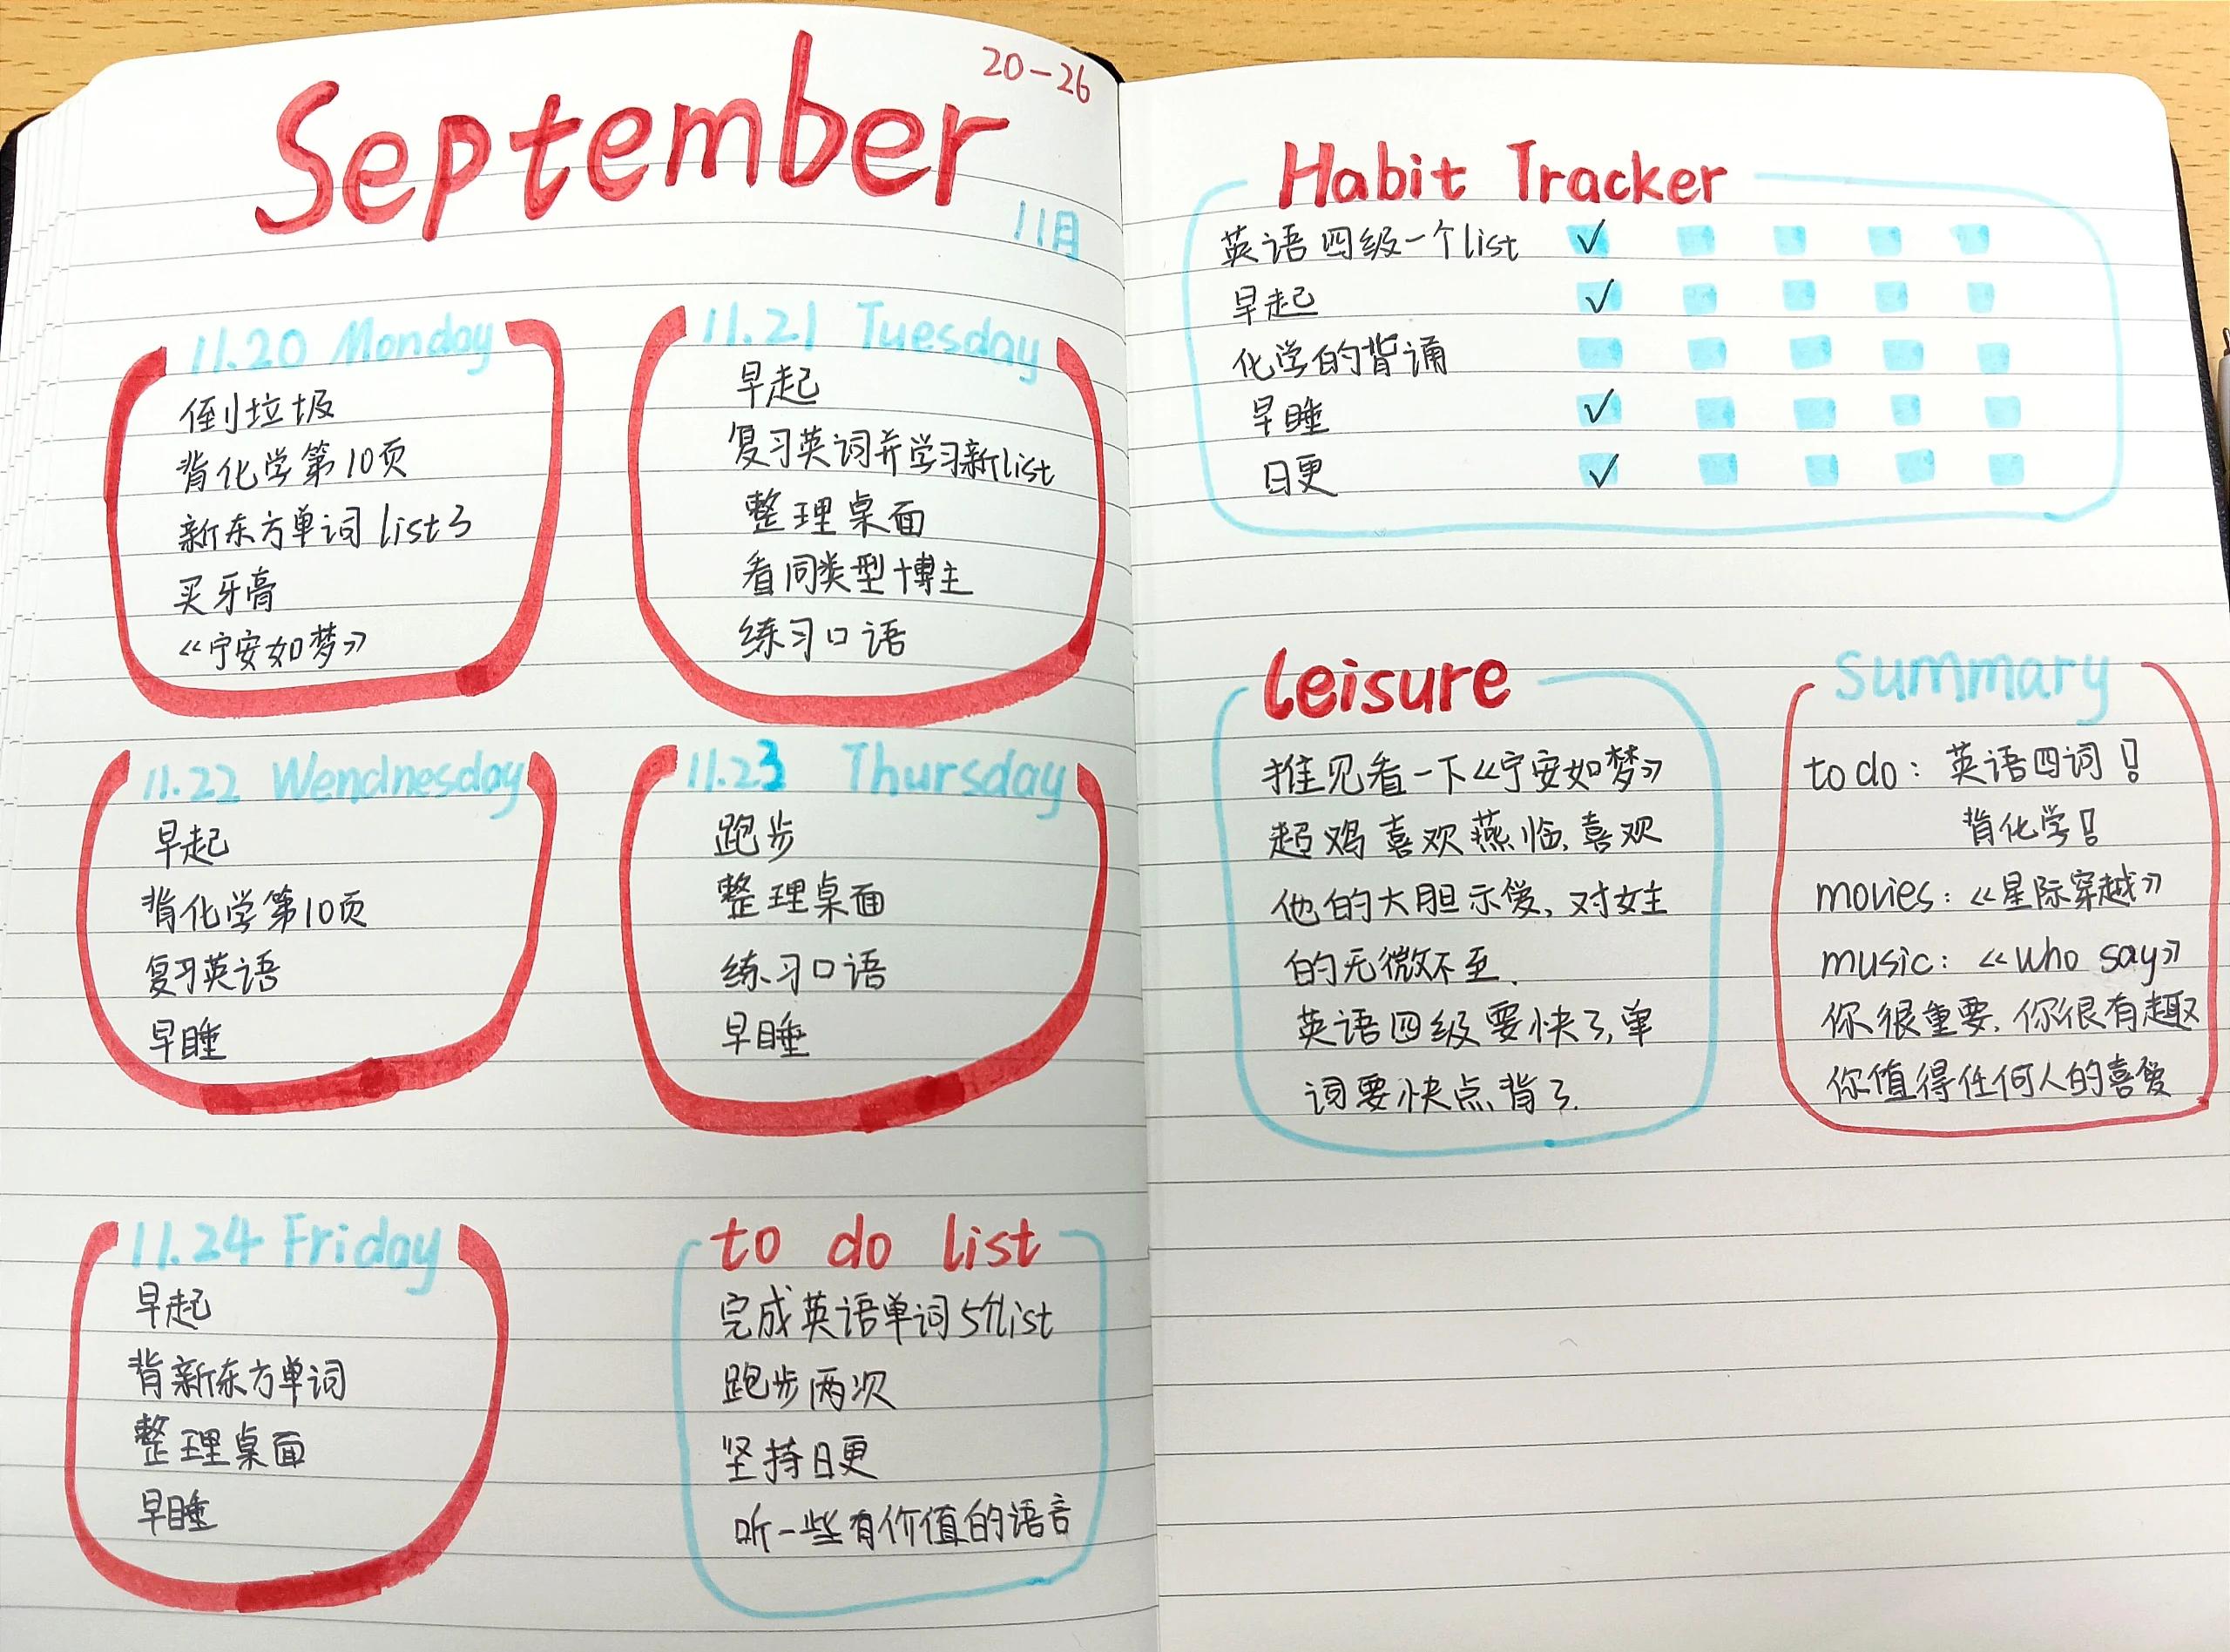 September
20-26
11月
11.20 Monday
倒垃圾
背化学第10页
新东方单词 list3
买牙膏
《宁安如梦》
11.21 Tuesday
早起
复习英词并学习新list
整理桌面
看同类型博主
练习口语
11.22 Wendnesday
早起
背化学第10页
复习英语
早睡
11.23 Thursday
跑步
整理桌面
练习口语
早睡
11.24 Friday
早起
背新东方单词
整理桌面
早睡
to do list
完成英语单词5个list
跑步两次
坚持日更
听一些有价值的语言
Habit Tracker
英语四级一个list ✓
早起 ✓
化学的背诵
早睡 ✓
日更 ✓
leisure
推见看一下《宁安如梦》
超鸡喜欢燕临,喜欢
他的大胆示爱,对女主
的无微不至.
英语四级要快了,单
词要快点背了.
summary
to do: 英语四词!
背化学!
movies: 《星际穿越》
music: 《who say》
你很重要,你很有趣
你值得任何人的喜爱